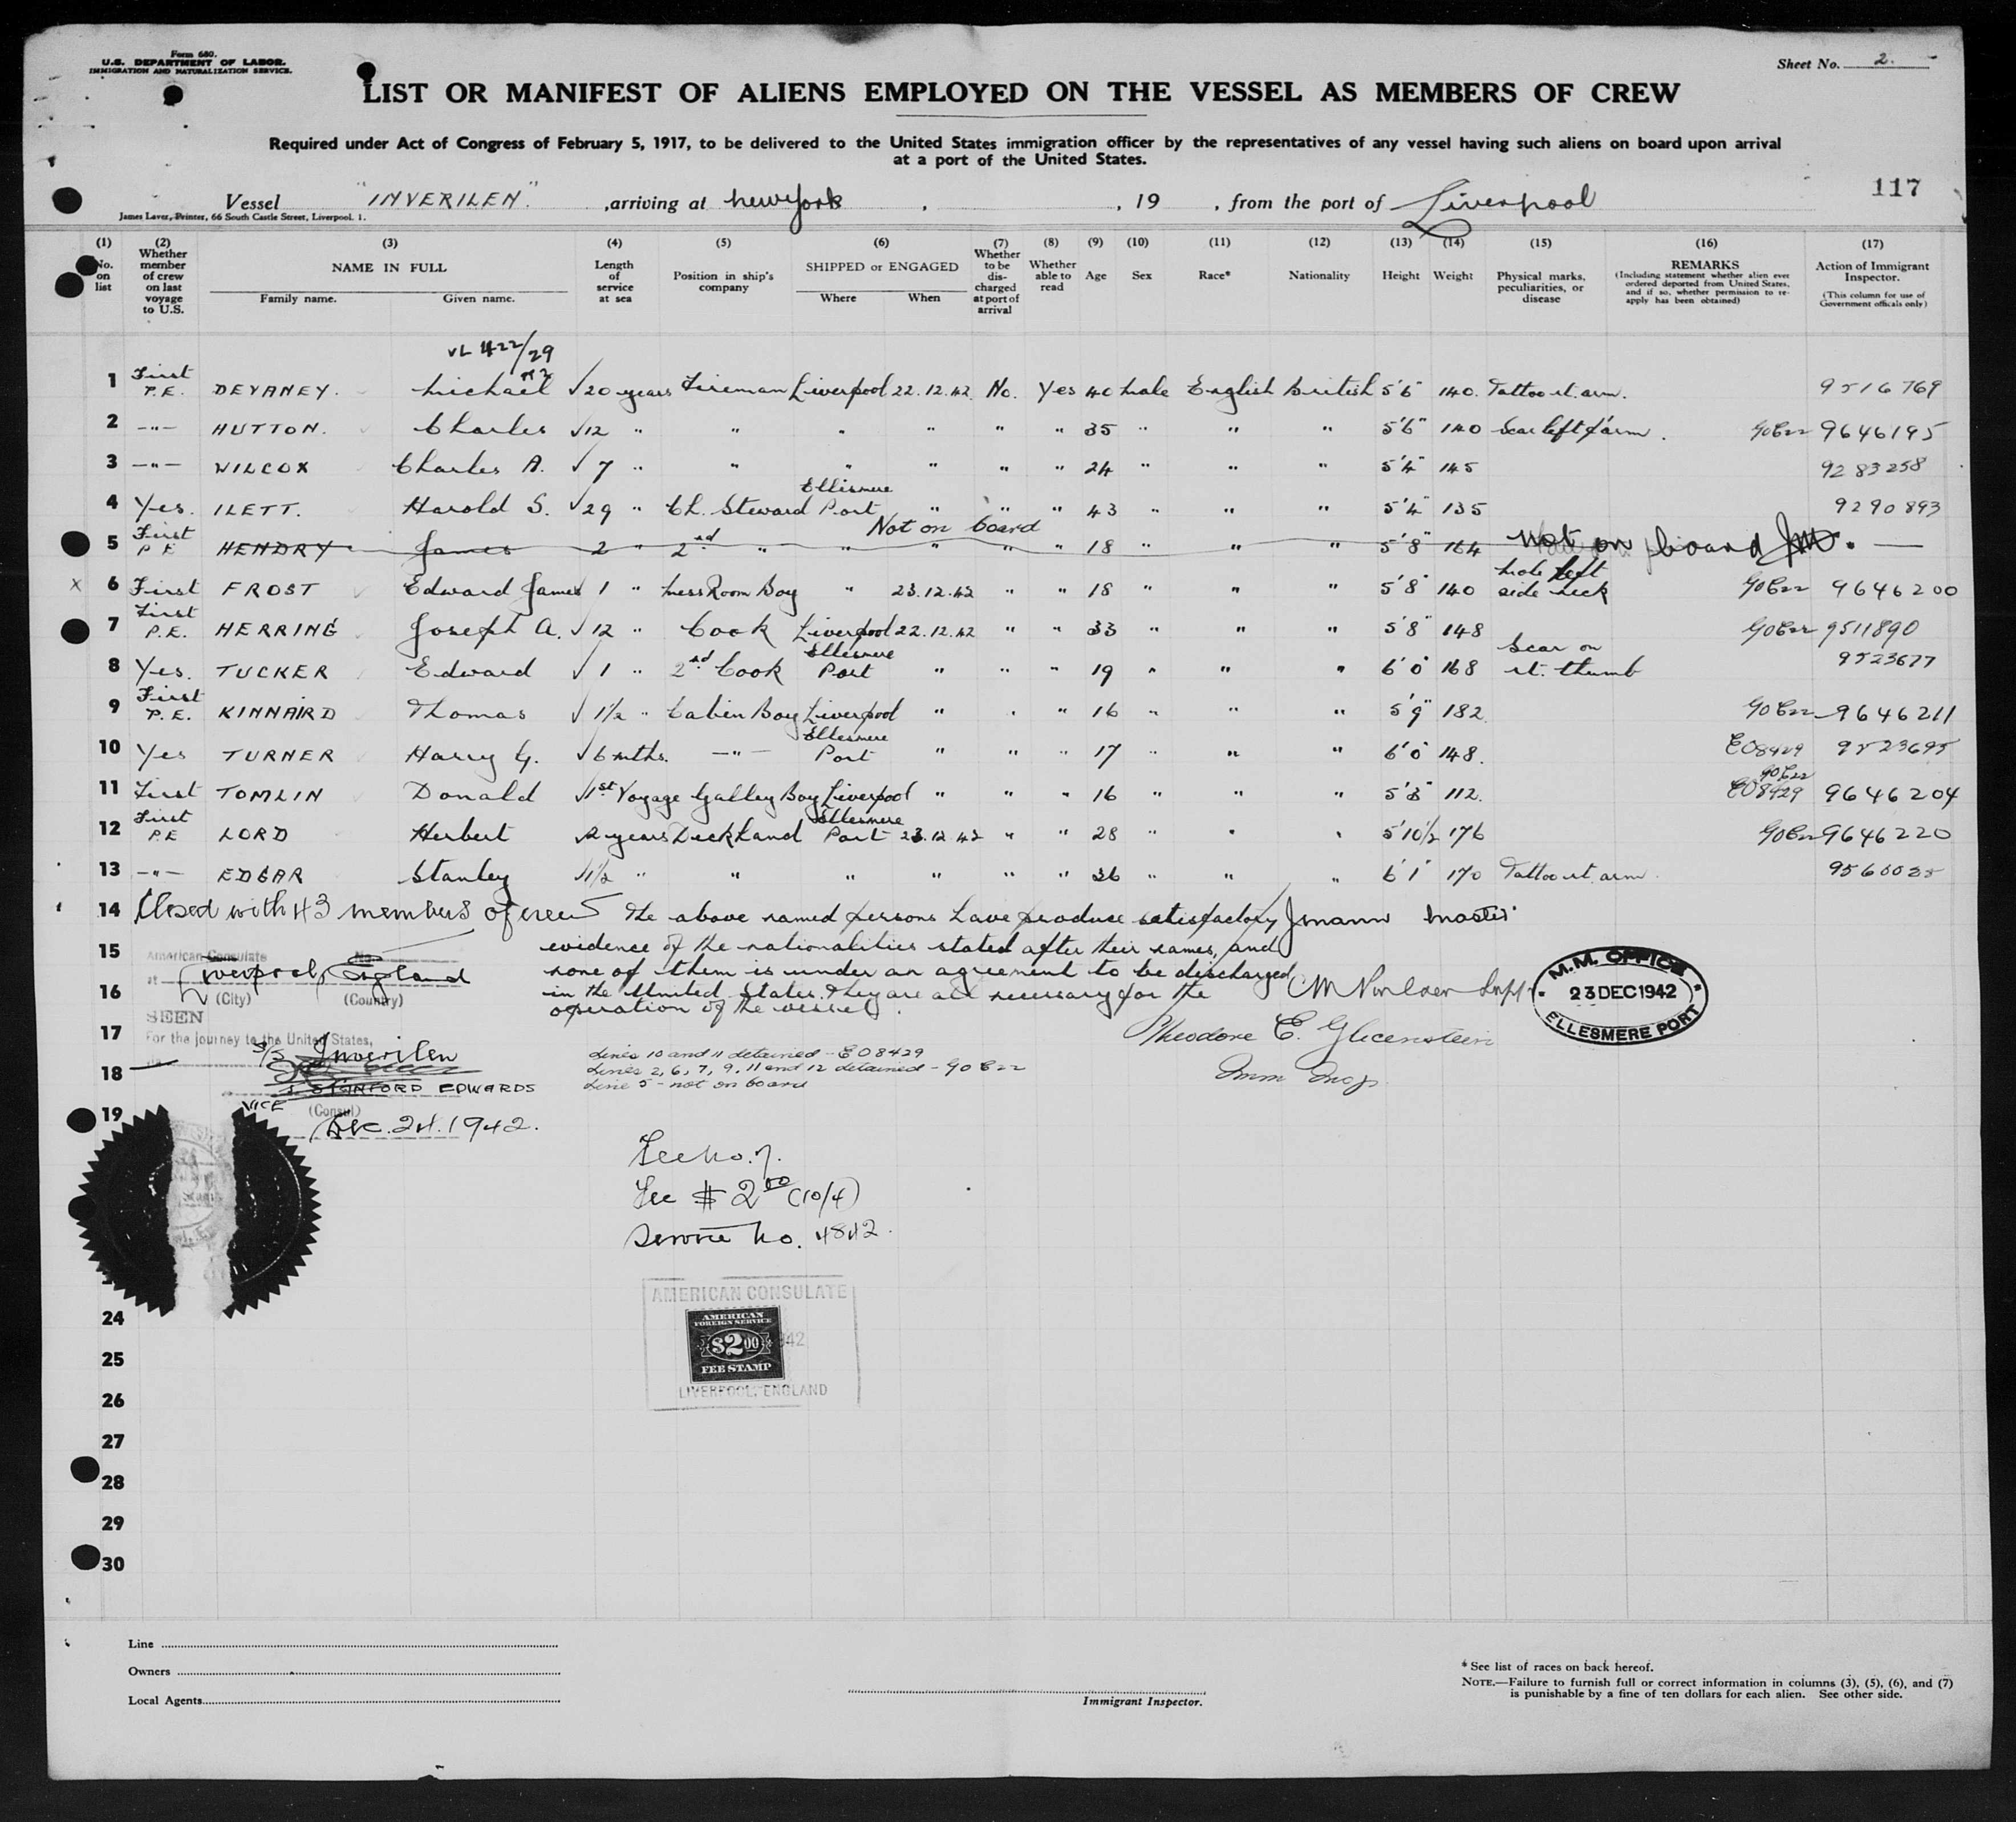 Form 680.
U.S. DEPARTMENT OF LABOR.
IMMIGRATION AND NATURALIZATION SERVICE.
Sheet No. 2.
LIST OR MANIFEST OF ALIENS EMPLOYED ON THE VESSEL AS MEMBERS OF CREW
Required under Act of Congress of February 5, 1917, to be delivered to the United States immigration officer by the representatives of any vessel having such aliens on board upon arrival
at a port of the United States.
117
Vessel "INVERILEN". , arriving at New York , , 19 , from the port of Liverpool
James Laver, Printer, 66 South Castle Street, Liverpool. 1.
(1) (2) (3) (4) (5) (6) (7) (8) (9) (10) (11) (12) (13) (14) (15) (16) (17)
No. on list
Whether member of crew on last voyage to U.S.
NAME IN FULL
Family name. Given name.
Length of service at sea
Position in ship's company
SHIPPED or ENGAGED
Where When
Whether to be discharged at port of arrival
Whether able to read
Age
Sex
Race*
Nationality
Height
Weight
Physical marks, peculiarities, or disease
REMARKS
(Including statement whether alien ever ordered deported from United States, and if so, whether permission to re-apply has been obtained)
Action of Immigrant Inspector.
(This column for use of Government officials only)
1 First P.E. DEVANEY. Michael √20 years Fireman Liverpool 22.12.42 No. Yes 40 Male English British 5'6" 140. Tattoo rt. arm. 9516769
2 -"- HUTTON. Charles √12 " " " " " " 35 " " " 5'6" 140 Scar left f'arm. 9646195
3 -"- WILCOX Charles A. √7 " " " " " " 24 " " " 5'4" 145 9283258
4 Yes. ILETT. Harold S. √29 " Ch. Steward Ellesmere Port " " " 43 " " " 5'4" 135 9290893
Not on board
5 First P.E HENDRY James 2 " 2nd " " " " " 18 " " " 5'8" 164 Not on board JM. —
x 6 First FROST Edward James 1 " Mess Room Boy " 23.12.42 " " 18 " " " 5'8" 140 Mole left side neck 9646200
7 First P.E. HERRING Joseph A. √12 " Cook Liverpool 22.12.42 " " 33 " " " 5'8" 148 9511890
8 Yes. TUCKER Edward √1 " 2nd Cook Ellesmere Port " " " 19 " " " 6'0" 168 Scar on rt. thumb 9523677
9 First P.E. KINNAIRD Thomas √1½ " Cabin Boy Liverpool " " " 16 " " " 5'9" 182. 9646211
10 Yes TURNER Harry G. √6 mths. -"- Ellesmere Port " " " 17 " " " 6'0" 148. E08429 9523695
11 First TOMLIN Donald √1st Voyage Galley Boy Liverpool " " " 16 " " " 5'3" 112. E08429 9646204
12 First P.E LORD Herbert 2 years Deck Hand Ellesmere Port 23.12.42 " " 28 " " " 5'10½ 176 9646220
13 -"- EDGAR Stanley √1½ " " " " " " 36 " " " 6'1" 170 Tattoo rt. arm.
14 Closed with 43 members of crew The above named persons have produce satisfactory J Mann Master
15 evidence of the nationalities stated after their names, and
none of them is under an agreement to be discharged
16 in the United States. They are all necessary for the
operation of the vessel.
American Consulate No.
at Liverpool, England
(City) (Country)
SEEN
17 For the journey to the United States,
S/S Inverilen
18
STANFORD EDWARDS
VICE (Consul)
19 Dec. 24. 1942.
M.M. OFFICE
23 DEC 1942
ELLESMERE PORT
Theodore E. Glicenstein
Imm Insp.
Lines 10 and 11 detained - E08429
Lines 2, 6, 7, 9, 11 and 12 detained -
Line 5 - not on board
Fee No. 7.
Fee $2.00 (10/4)
Service No. 4842.
AMERICAN CONSULATE
AMERICAN
FOREIGN SERVICE
$2.00
FEE STAMP
LIVERPOOL, ENGLAND
24
25
26
27
28
29
30
Line
Owners
Local Agents
Immigrant Inspector.
* See list of races on back hereof.
NOTE.—Failure to furnish full or correct information in columns (3), (5), (6), and (7)
is punishable by a fine of ten dollars for each alien. See other side.